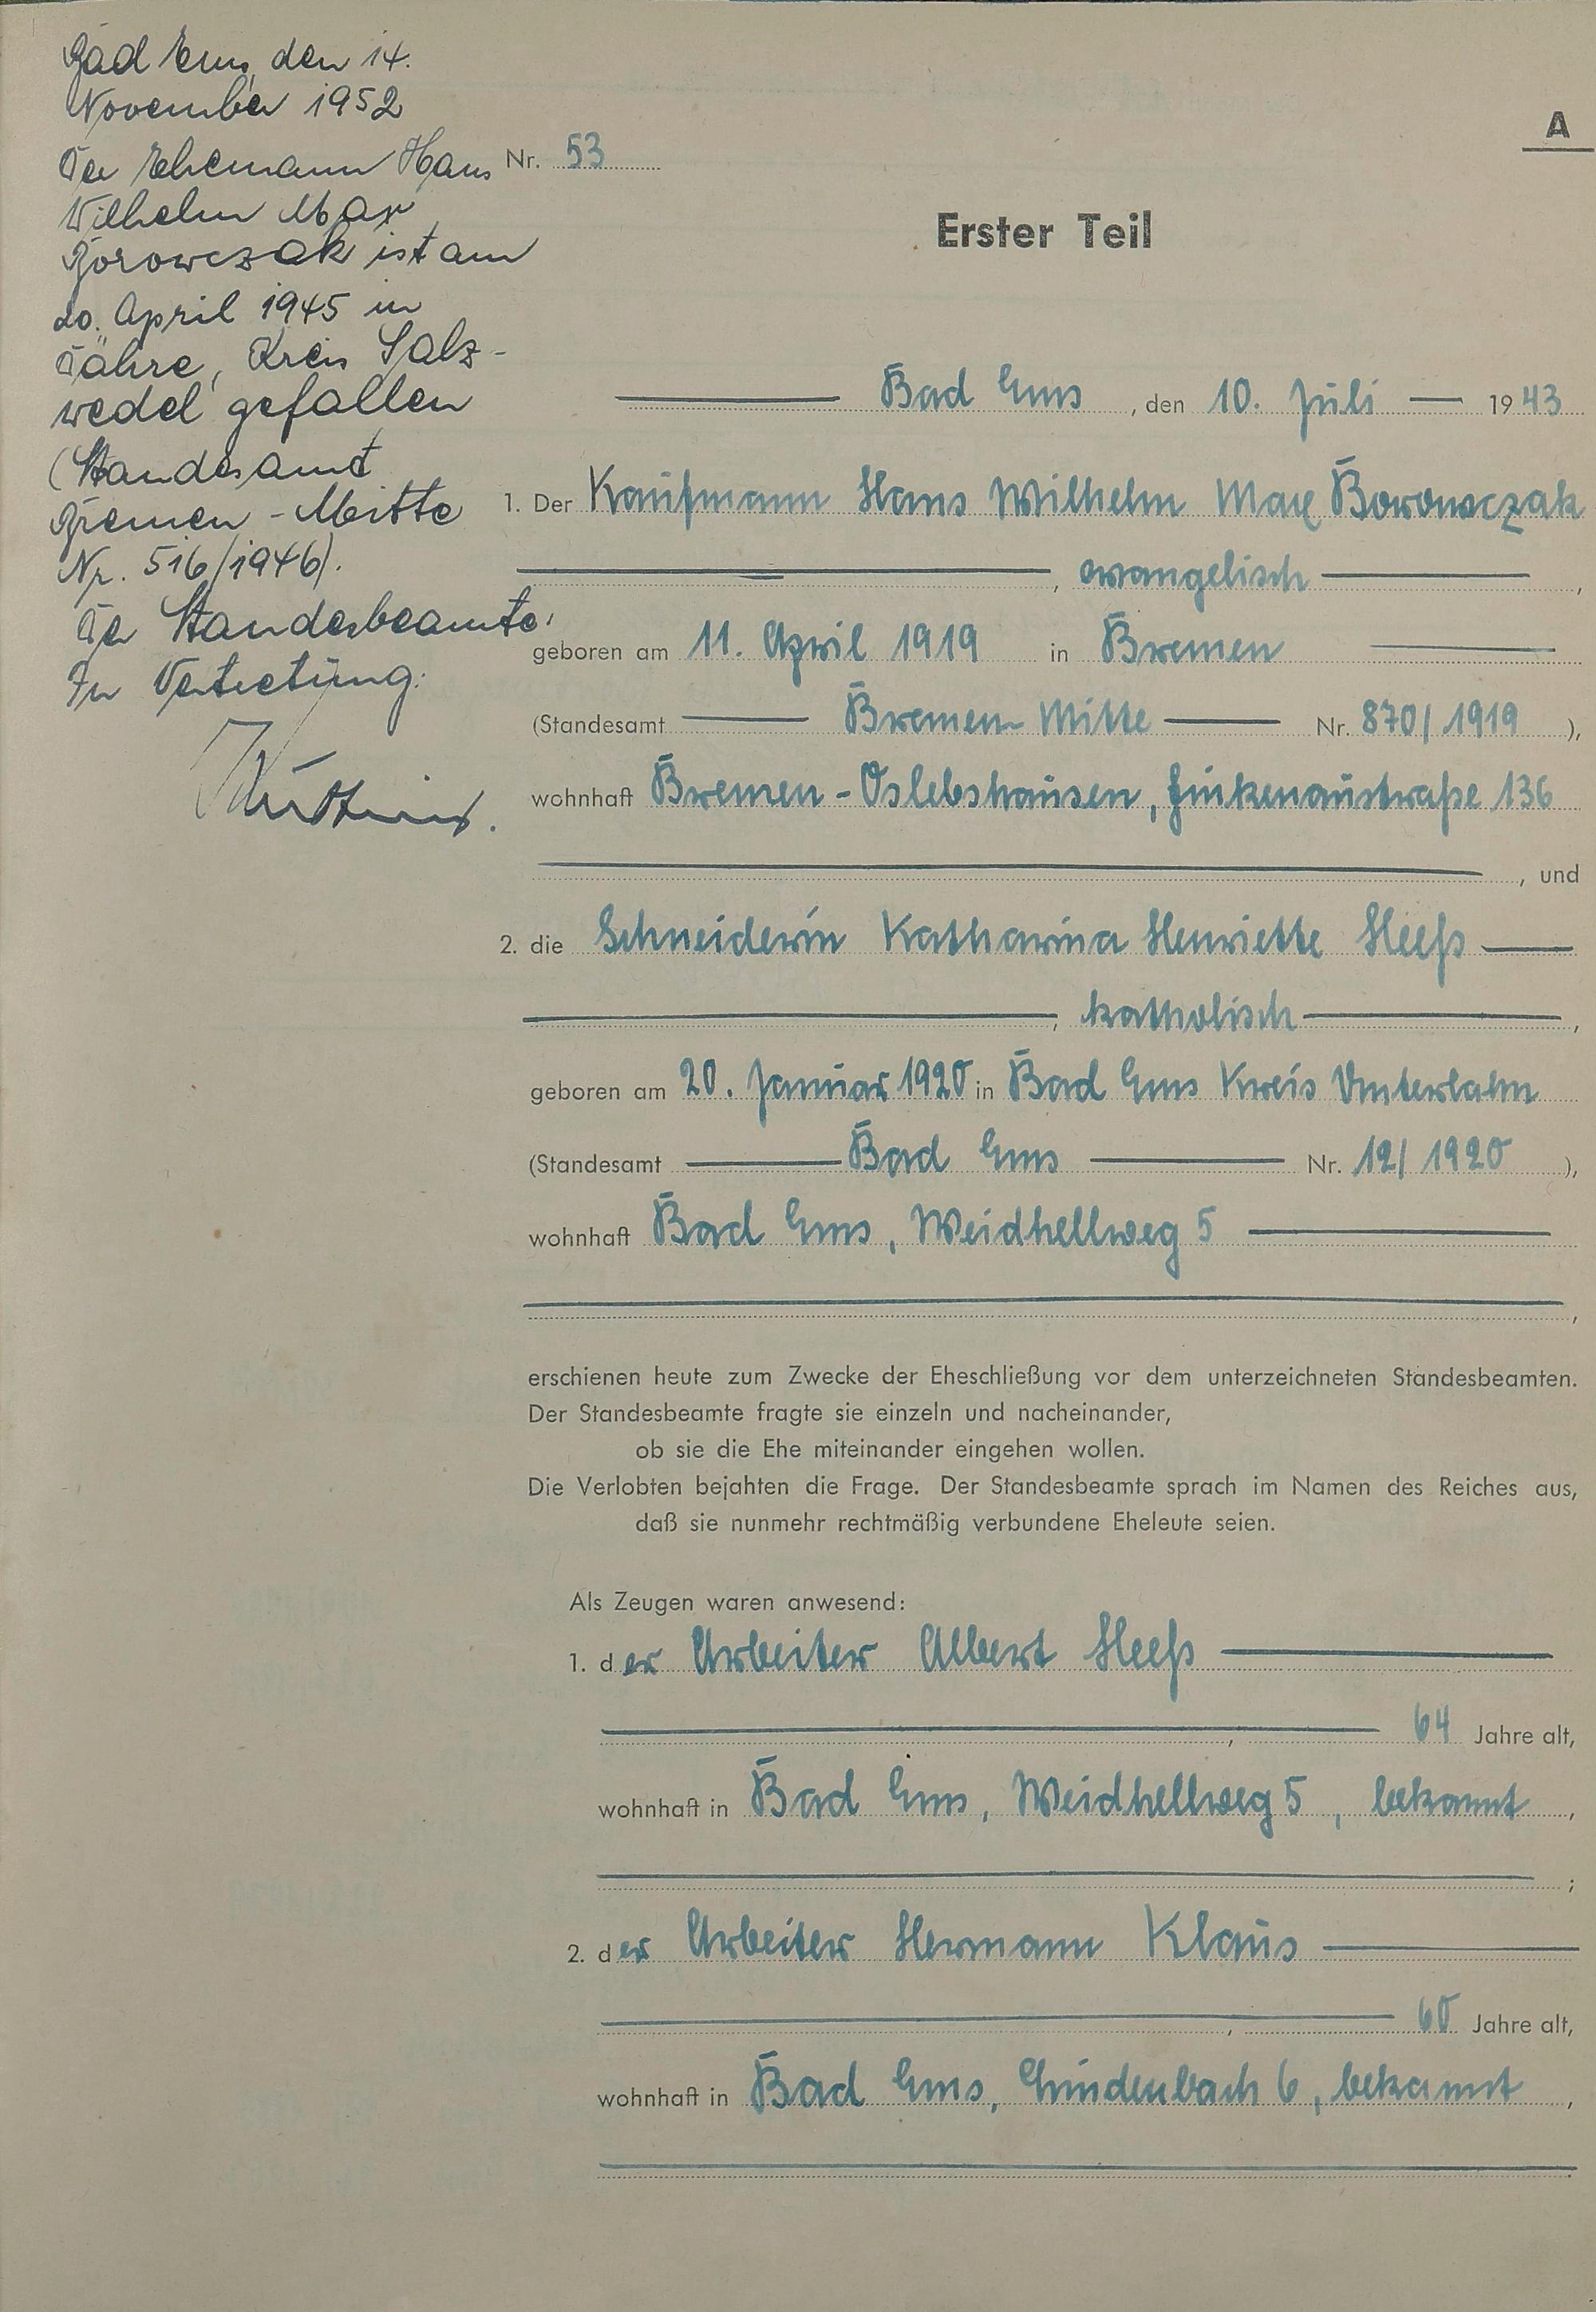 Bad Ems, den 14.
November 1952
Der Ehemann Hans
Wilhelm Max
Borowczak ist am
20. April 1945 in
Dähre, Kreis Salz-
wedel gefallen
(Standesamt
Bremen - Mitte
Nr. 516/1946).
Der Standesbeamte:
In Vertretung:
A
Nr. 53
Erster Teil
Bad Ems, den 10. Juli 1943
1. Der Kaufmann Hans Wilhelm Max Borowczak
, evangelisch ,
geboren am 11. April 1919 in Bremen
(Standesamt Bremen-Mitte Nr. 870/1919 ),
wohnhaft Bremen-Oslebshausen, Finkenaustraße 136
, und
2. die Schneiderin Katharina Henriette Heeß
, katholisch ,
geboren am 20. Januar 1920 in Bad Ems Kreis Unterlahn
(Standesamt Bad Ems Nr. 12/1920 ),
wohnhaft Bad Ems, Weidhellweg 5
,
erschienen heute zum Zwecke der Eheschließung vor dem unterzeichneten Standesbeamten.
Der Standesbeamte fragte sie einzeln und nacheinander,
ob sie die Ehe miteinander eingehen wollen.
Die Verlobten bejahten die Frage. Der Standesbeamte sprach im Namen des Reiches aus,
daß sie nunmehr rechtmäßig verbundene Eheleute seien.
Als Zeugen waren anwesend:
1. der Arbeiter Albert Heeß
, 64 Jahre alt,
wohnhaft in Bad Ems, Weidhellweg 5, bekannt ,
;
2. der Arbeiter Hermann Klaus
, 60 Jahre alt,
wohnhaft in Bad Ems, 6, bekannt ,